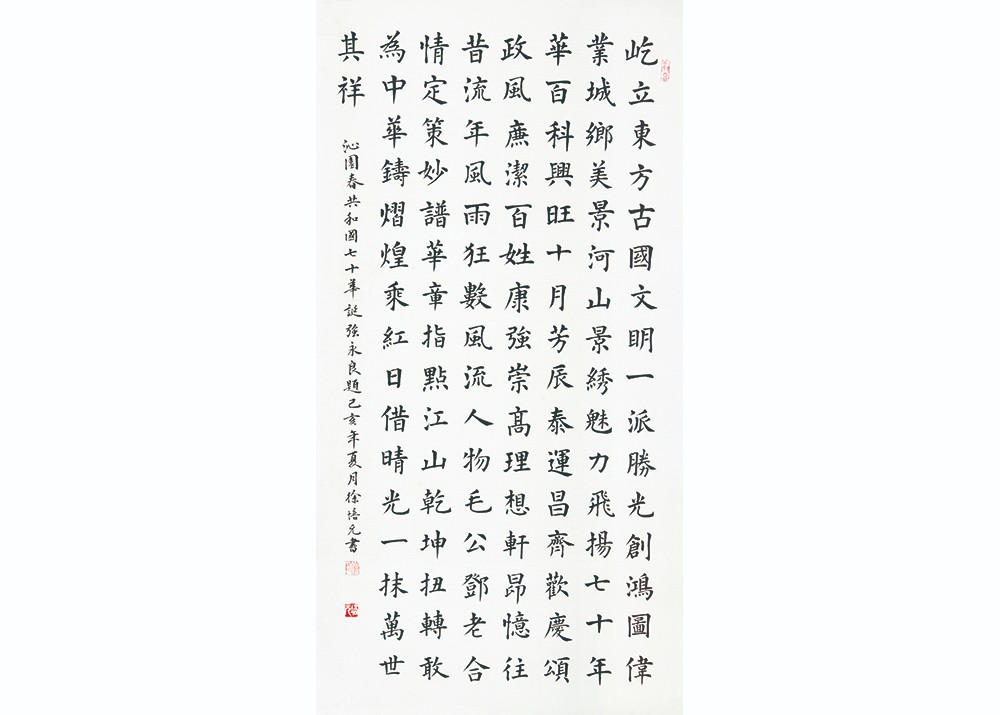 屹立東方古國文明一派勝光創鴻圖偉
業城鄉美景河山景綉魅力飛揚七十年
華百科興旺十月芳辰泰運昌齊歡慶頌
政風廉潔百姓康強崇高理想軒昂憶往
昔流年風雨狂數風流人物毛公鄧老合
情定策妙譜華章指點江山乾坤扭轉敢
為中華鑄熠煌乘紅日借晴光一抹萬世
其祥
沁園春共和國七十華誕強永良題己亥年夏月徐培元書